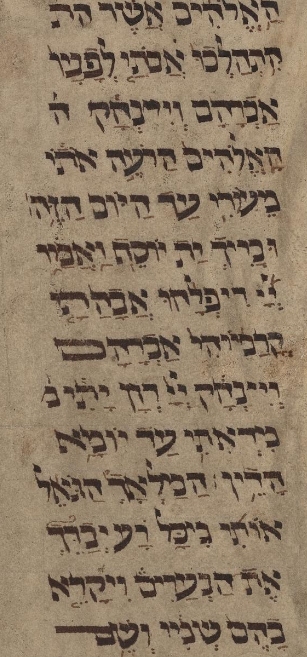 האלהים אשר הת
התהלכו אבתי לפניו
אברהם ויצחק ה
האלהים הרעה אתי
מעודי עד היום הזה
ובריך ית יוסף ואמר
יי דיפלחו אבהתי
קדמוהי אברהם
ויצחק יי דזן יתי מ
מדאתי עד יומא
הדין׃ המלאך הגואל
אותי מכל רע יברך
את הנערים ויקרא
בהם שמי ושם